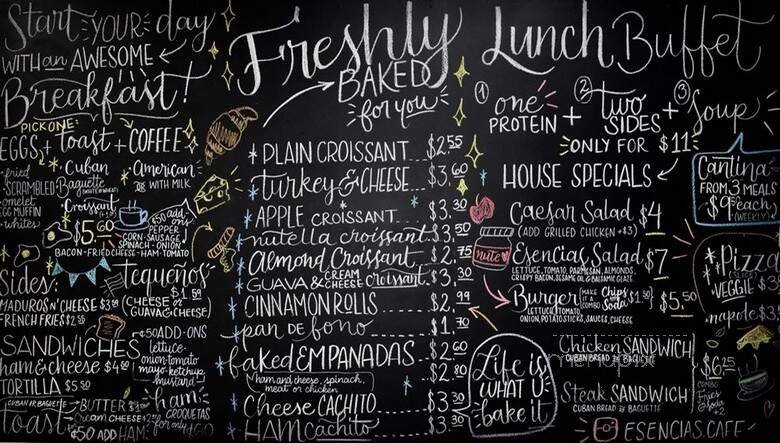 Start YOUR day
WITH an AWESOME
Breakfast!
PICK ONE:
EGGS + Toast + COFFEE
fried
SCRAMBLED
omelet
EGG MUFFIN
whites
Cuban
Baguette
Croissant
American
OR WITH MILK
$5.60
$0.50 add ons
PEPPER
CORN - SAUSAGE
SPINACH - ONION
BACON - FRIED CHEESE - HAM - TOMATO
Sides:
MADUROS N' CHEESE
FRENCH FRIES
tequeños
$1.50
(CHEESE or
GUAVA & CHEESE)
SANDWICHES
ham & cheese
TORTILLA $5.50
CUBAN OR BAGUETTE
Toast
BUTTER
CREAM CHEESE
$0 ADD HAM
$.50 ADD-ONS
lettuce-
onion-tomato
mayo-ketchup
mustard
ham
CROQUETAS
for only
Freshly
BAKED
for you
PLAIN CROISSANT...$2.55
Turkey & CHEESE...$3.60
APPLE CROISSANT...$3.30
nutella croissant $3.50
Almond Croissant...$2.75
GUAVA & CREAM CHEESE croissant $3.30
CINNAMON ROLLS...$2.99
pan DE bono...$1.70
baked EMPANADAS...$2.60
$2.80
ham and cheese, spinach,
meat or chicken
Cheese CACHITO...$3.30
HAM cachito...$3.30
Lunch Buffet
1 one PROTEIN + 2 two SIDES + 3 Soup
ONLY FOR $11
HOUSE SPECIALS
Caesar Salad $4
(ADD GRILLED CHICKEN +$3)
Esencias Salad $7
LETTUCE, TOMATO, PARMESAN, ALMONDS,
CRISPY BACON, SESAME OIL & BALSAMIC GLAZE
Burger (MAKE IT A COMBO Chips Soda $1.50) $5.50
LETTUCE, TOMATO,
ONION, POTATO STICKS, SAUCES, CHEESE
Chicken SANDWICH
CUBAN BREAD OR BAGUETTE
Steak SANDWICH
CUBAN BREAD OR BAGUETTE
$6.25
COMBO
Fries
Soda
+2
Cantina
FROM 3 MEALS
$9 each
(WEEKLY)
Pizza
VEGGIE
napole
nute
Life is
WHAT U
bake it
ESENCIAS CAFE